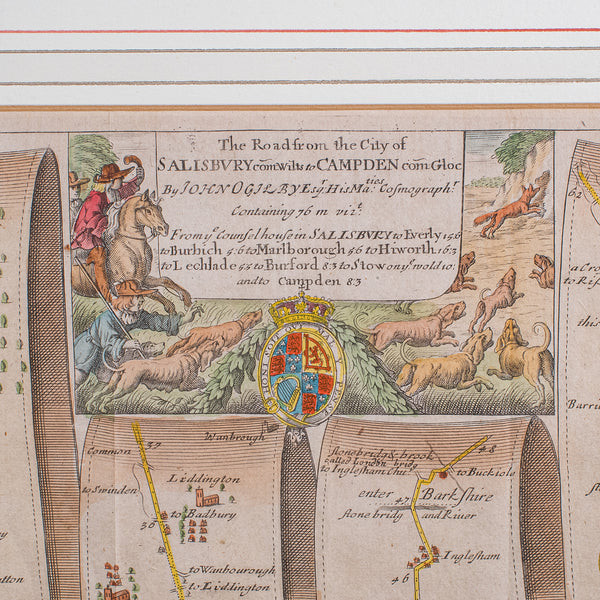 The Road from the City of
SALISBVRY com Wilts to CAMPDEN com Gloc
By JOHN OGILBY Esqr. His Maties Cosmographr.
Containing 76 m vizt.
From ye Counsel house in SALISBVRY to Everly 15'6
to Burbich 4'6 to Marlborough 5'6 to Hiworth 16'3
to Lechlade 4'4 to Burford 8'3 to Stow on ye wold 10
and to Campden 8'3
HONI SOIT QVI MAL Y PENSE
62
a Cro
to Ris
this
Barri
Common
37
Wanbrough
to Swinden
Liddington
to Badbury
36
to Wanbourough
to Liddington
tton
stone bridg & brook
called London bridg
to Inglesham Chu:
48
to Buckiole
enter 47 Barkshire
stone bridg and River
Inglesham
46